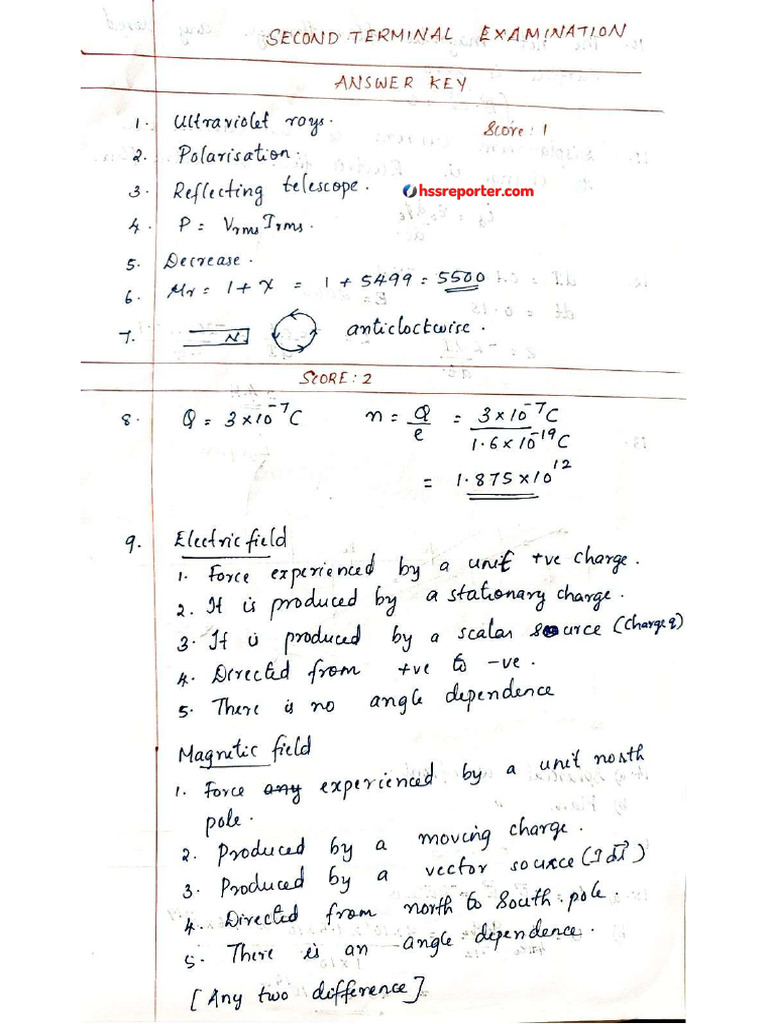 SECOND TERMINAL EXAMINATION
ANSWER KEY
1. Ultraviolet rays.
Score: 1
2. Polarisation.
3. Reflecting telescope.
hssreporter.com
4. P = VrmsIrms.
5. Decrease.
6. Mr = 1 + x = 1 + 5499 = 5500
7. N anticloctwise.
SCORE: 2
8. Q = 3×10⁻⁷C n = Q/e = 3×10⁻⁷C / 1.6×10⁻¹⁹C
= 1.875×10¹²
9. Electric field
1. Force experienced by a unit +ve charge.
2. It is produced by a stationary charge.
3. It is produced by a scalar source (charge q)
4. Directed from +ve to -ve.
5. There is no angle dependence
Magnetic field
1. Force any experienced by a unit north
pole.
2. Produced by a moving charge.
3. Produced by a vector source (Idl⃗)
4. Directed from north to South pole.
5. There is an angle dependence.
[Any two difference]